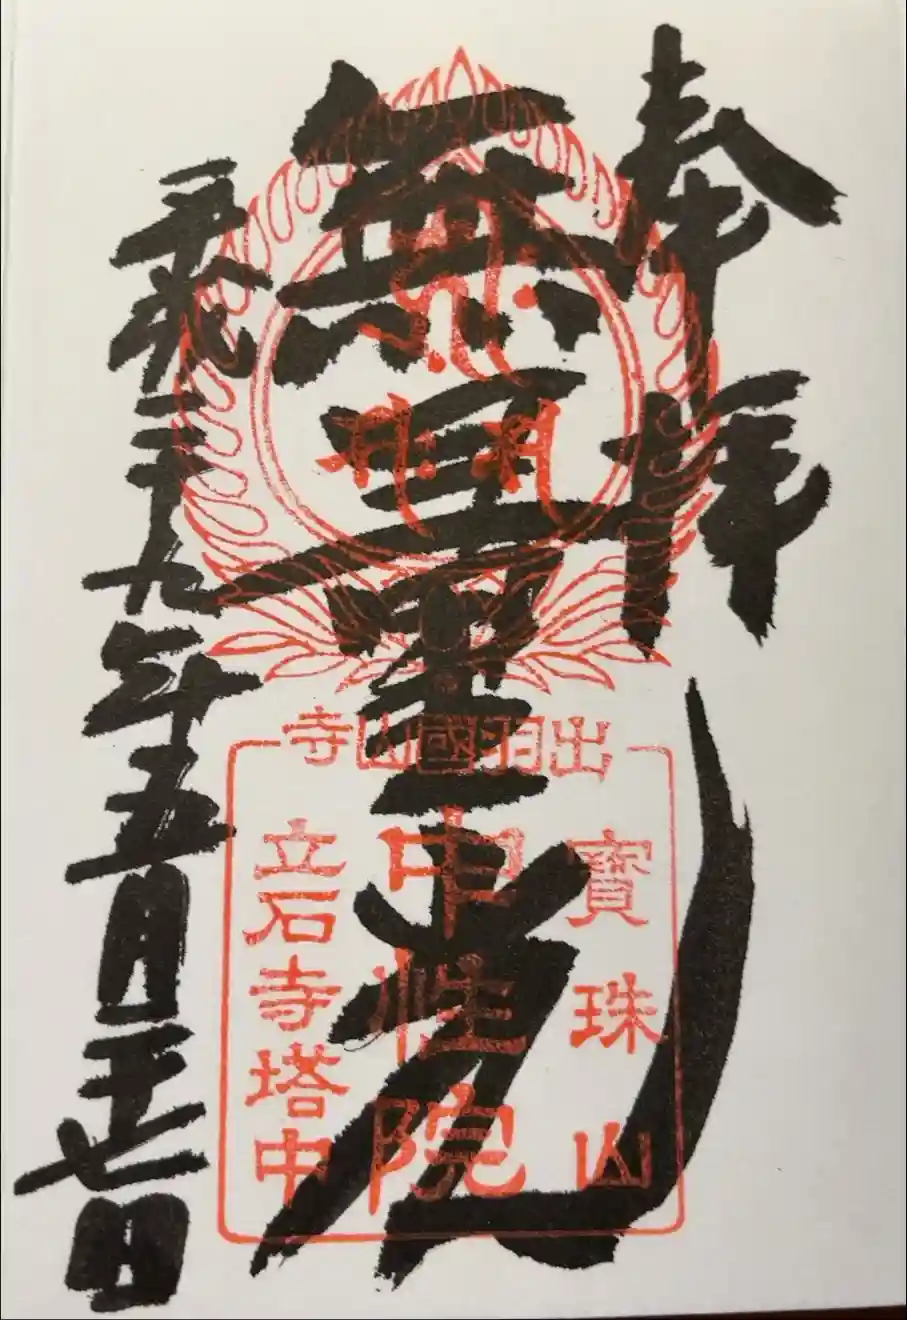 奉拝
無量光
平成二十九年五月二十七日
出羽國山寺
寶珠山
中性院
立石寺塔中